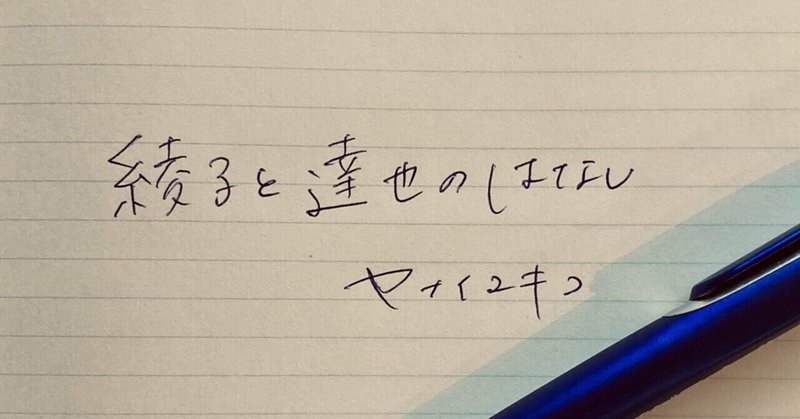 綾子と達也のはなし
ヤナイユキコ